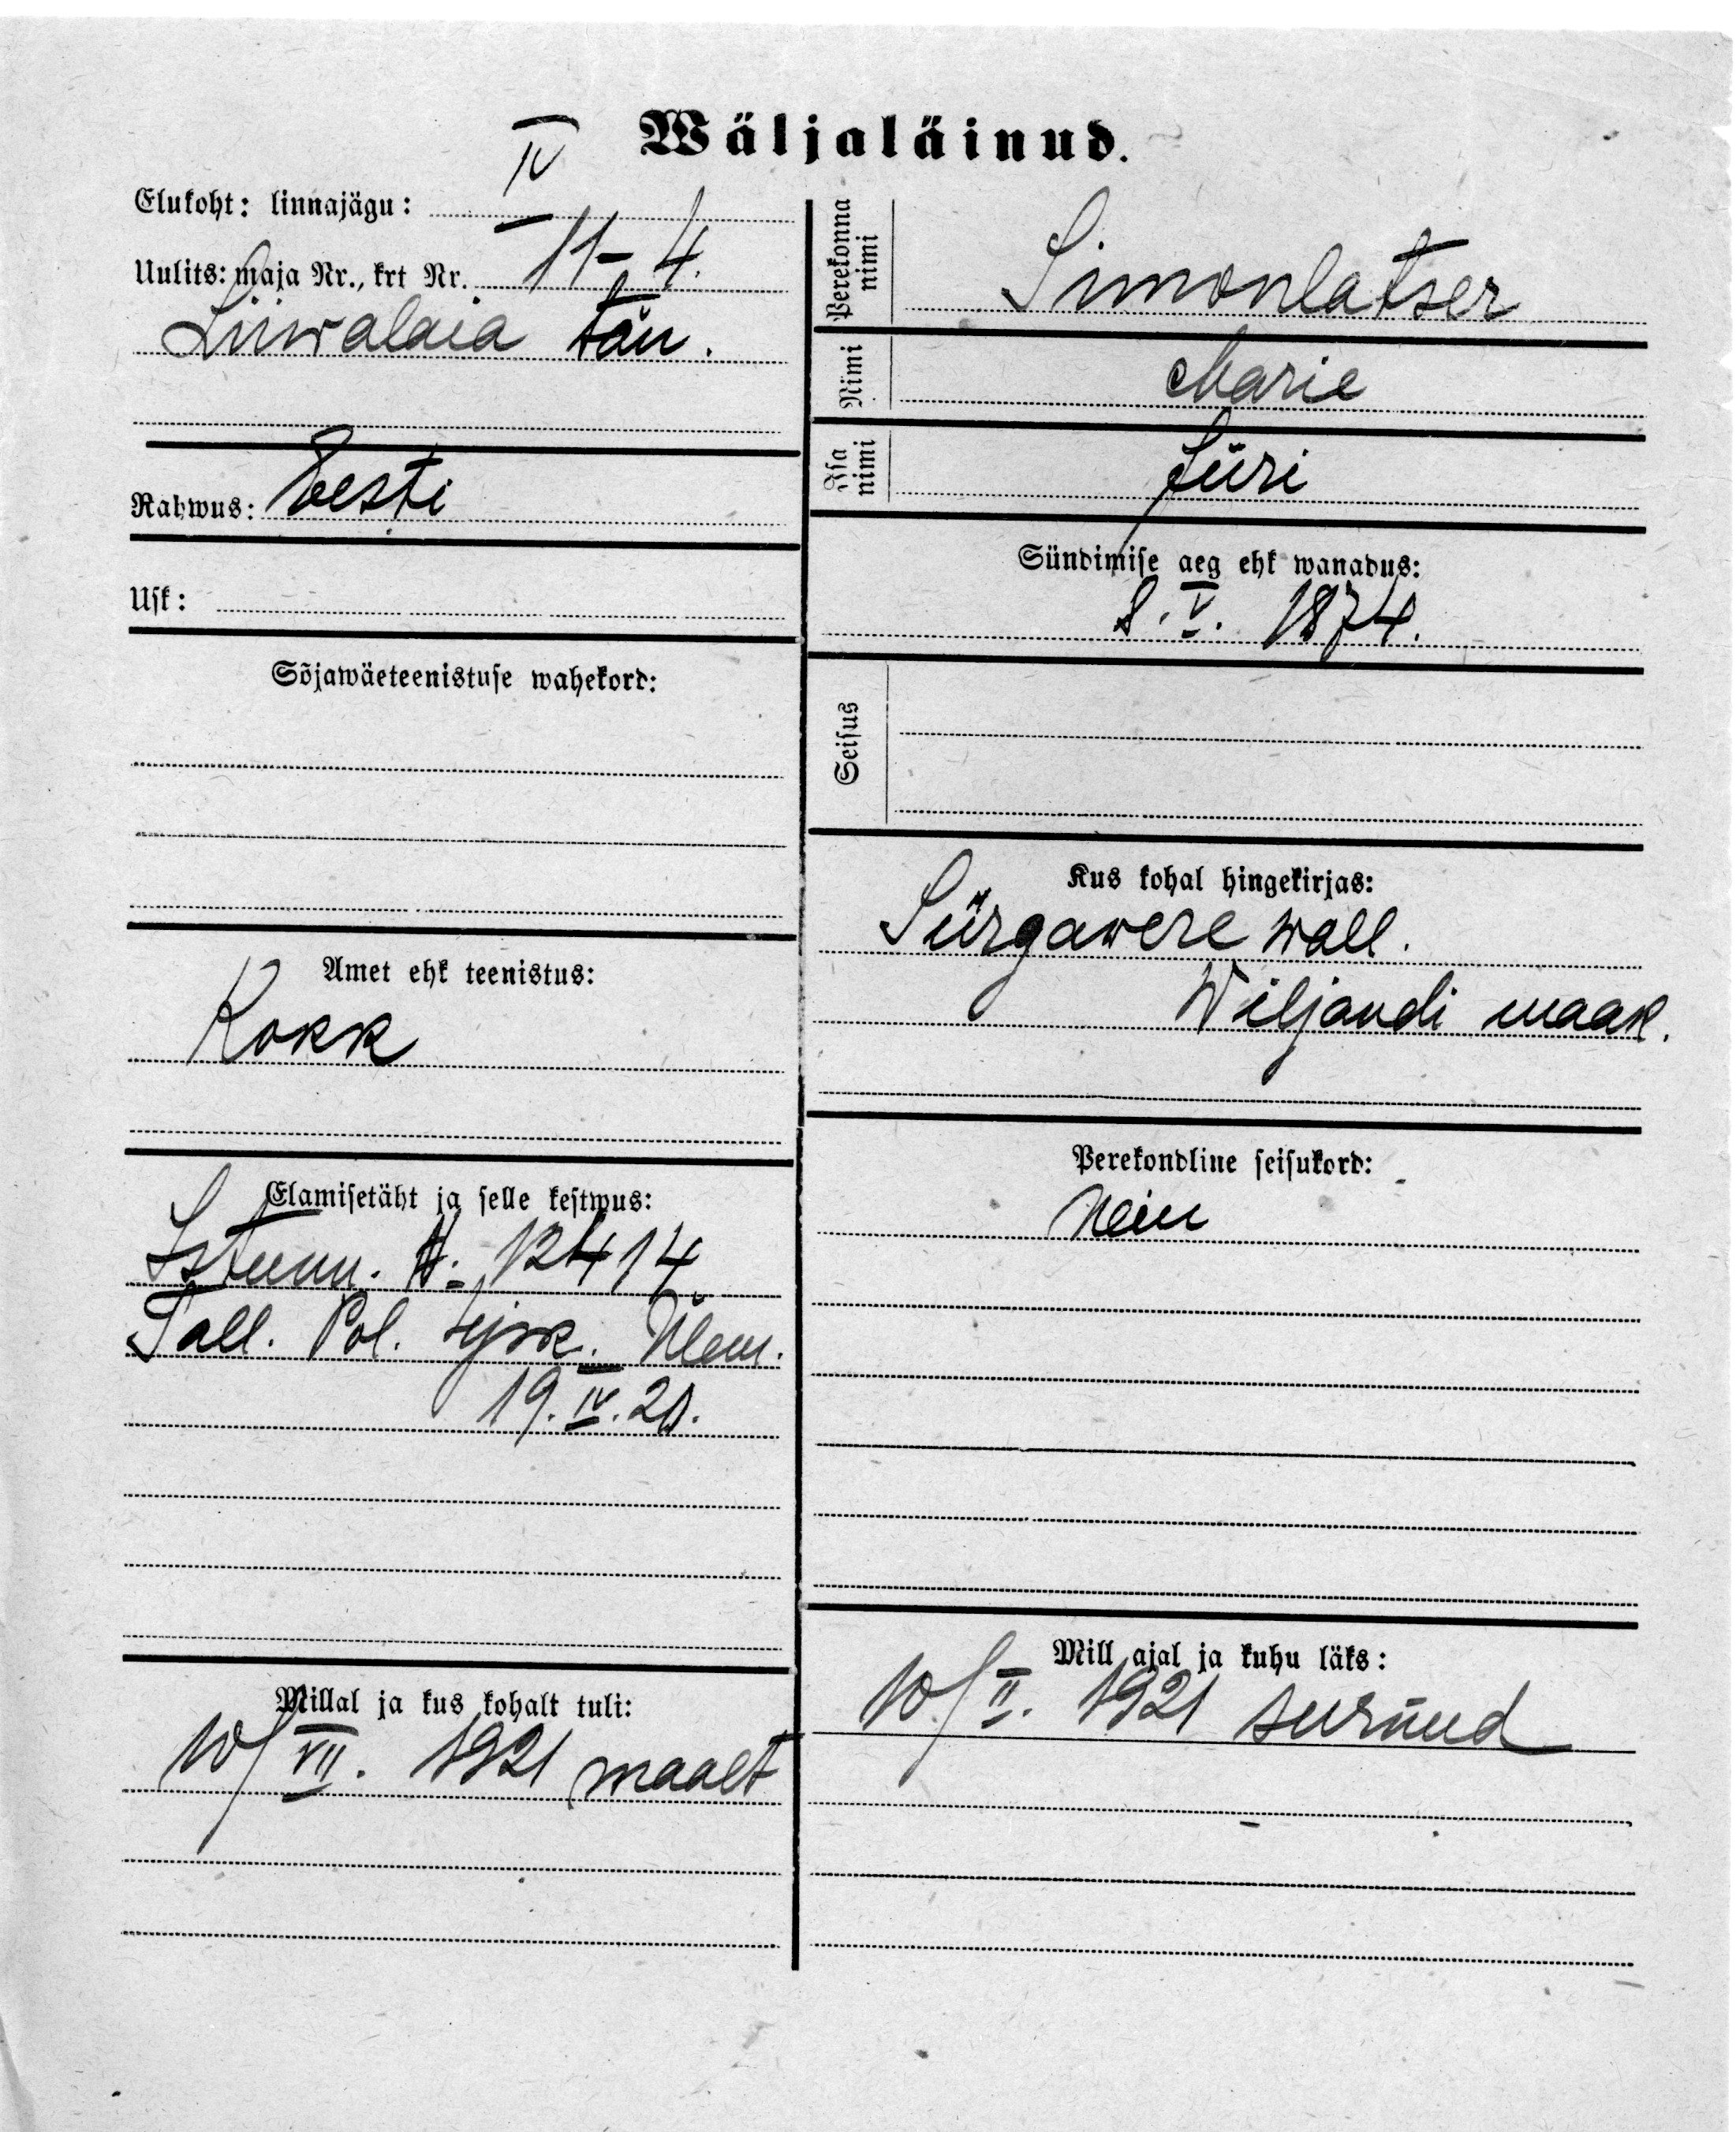 Wäljaläinud.
Elukoht: linnajägu: IV
Uulits: maja Nr., krt Nr. 11-4.
Liiwalaia tän.
Rahwus: Eesti
Usk:
Sõjawäeteenistuse wahekord:
Amet ehk teenistus:
Kokk
Elamisetäht ja selle kestwus:
Istunn. A. 12414
Tall. Pol. Ülem.
19.IV.20.
Millal ja kus kohalt tuli:
10/VII. 1921 maalt
Perekonna nimi
Simonlatser
Nimi
Marie
Isa nimi
Jüri
Sündimise aeg ehk wanadus:
8.V. 1874.
Seisus
Kus kohal hingekirjas:
Sürgawere wall.
Wiljandi maak.
Perekondline seisukord:
Neiu
Mill ajal ja kuhu läks:
10/II. 1921 surnud